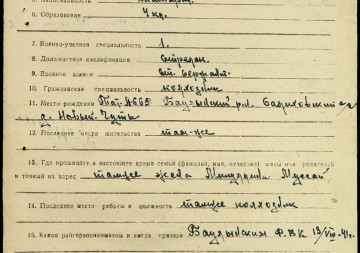 6. Образование 4 кл.
7. Военно-учетная специальность 1.
8. Должностная квалификация стрелок
9. Воинское звание
10. Гражданская специальность колхозник
11. Место рождения Тат. АССР Баулинский р-н
д. Новый-Чути
12. Последнее место жительства там-же
13. Где проживают в настоящее время семья (фамилия, имя, отчество) жены или родителей
и точный их адрес тамже жена
14. Последнее место работы и должность тамже колхозник
15. Каким райгорвоенкоматом и когда призван Баулинским РВК 19/VIII-41г.